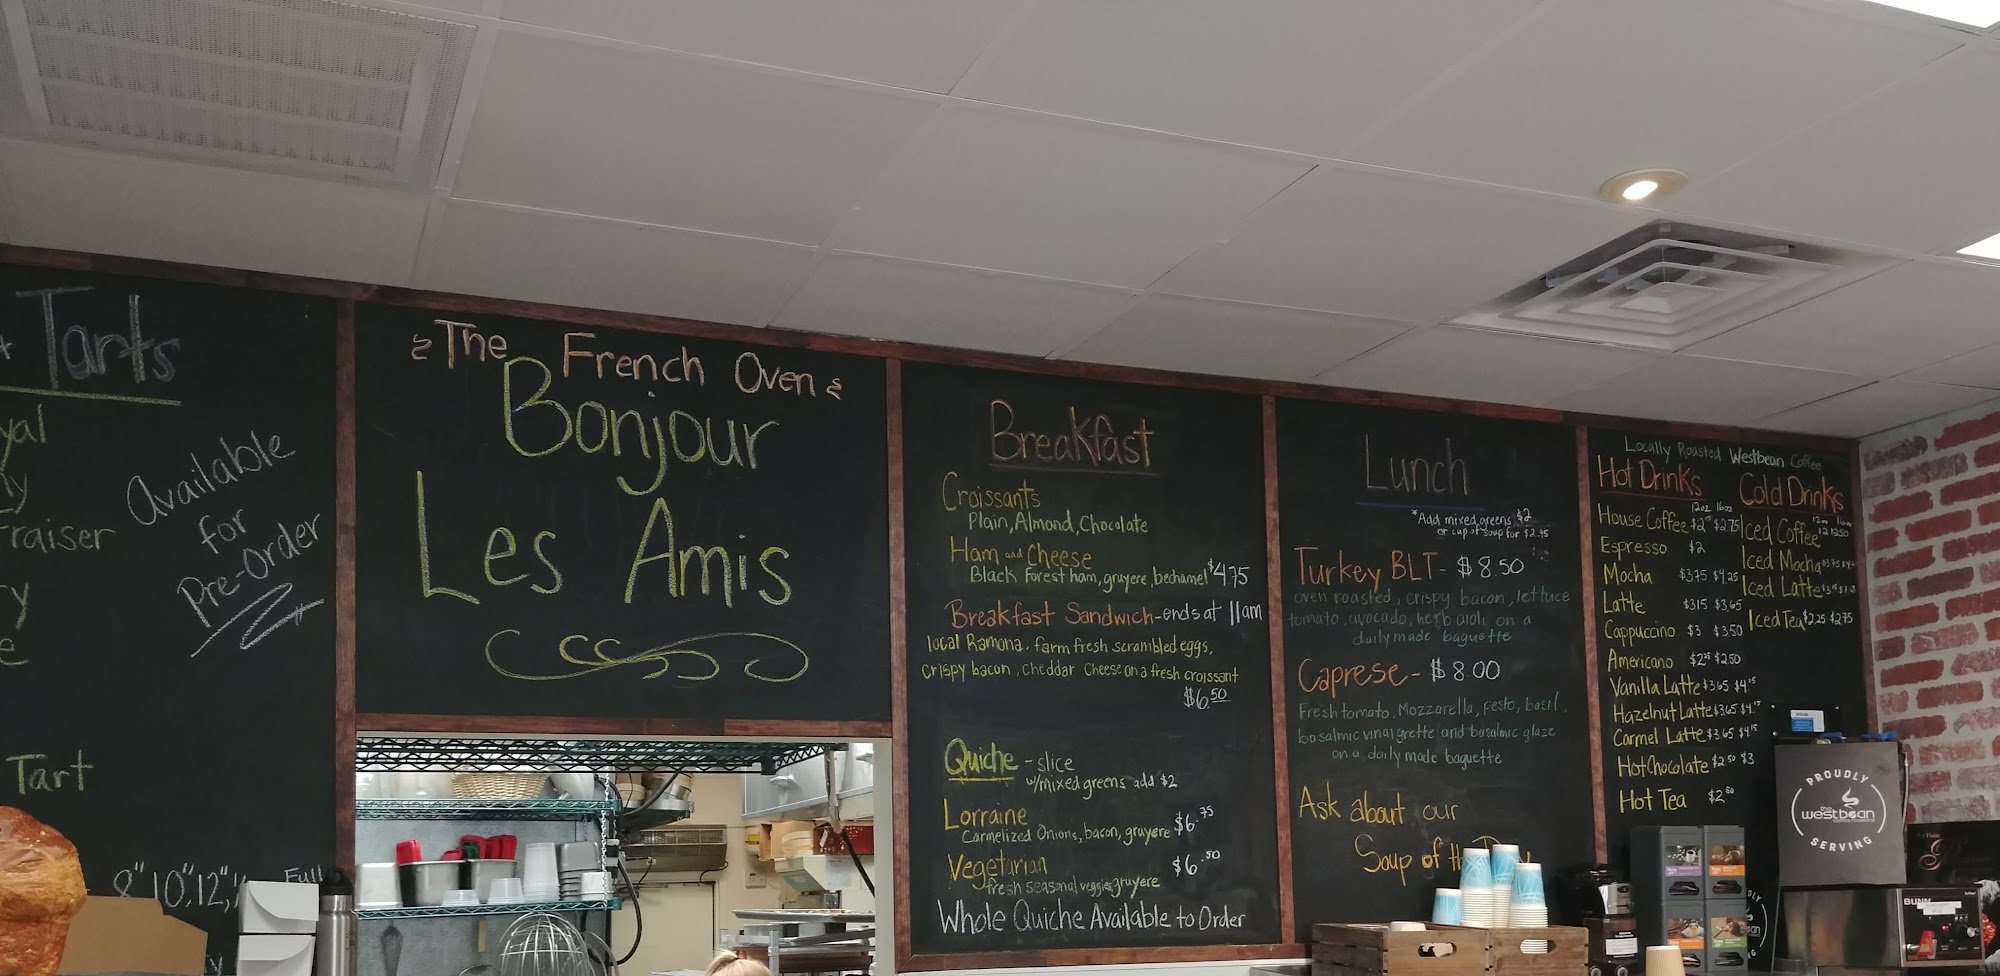 Tarts
Fraiser
Tart
Available
for
Pre-Order
8" 10", 12",
Full
The French Oven
Bonjour
Les Amis
Breakfast
Croissants
Plain, Almond, Chocolate
Ham and Cheese
Black Forest ham, gruyere, bechamel $4.75
Breakfast Sandwich - ends at 11am
local Ramona farm fresh scrambled eggs,
crispy bacon, cheddar cheese on a fresh croissant
$6.50
Quiche - slice
w/mixed greens add $2
Lorraine
Carmelized Onions, bacon, gruyere $6.75
Vegetarian $6.50
fresh seasonal veggies, gruyere
Whole Quiche Available to Order
Lunch
*Add mixed greens $2
or cup of soup for $2.95
Turkey BLT - $8.50
oven roasted, crispy bacon, lettuce
tomato, avocado, herb aioli on a
daily made baguette
Caprese - $8.00
Fresh tomato, Mozzarella, pesto, basil,
basalmic vinaigrette and basalmic glaze
on a daily made baguette
Ask about our
Soup of
Locally Roasted Westbean Coffee
Hot Drinks
12oz 16oz
House Coffee $2.75
Espresso $2
Mocha $3.75 $4.25
Latte $3.15 $3.65
Cappuccino $3 $3.50
Americano $2.50
Vanilla Latte $3.65 $4.15
Hazelnut Latte $3.65 $4.15
Carmel Latte $3.65 $4.15
Hot Chocolate $2.50 $3
Hot Tea $2.50
Cold Drinks
Iced Coffee
Iced Mocha
Iced Latte
Iced Tea $2.25 $2.75
PROUDLY
the
westbean
coffee roasters
SERVING
BUNN